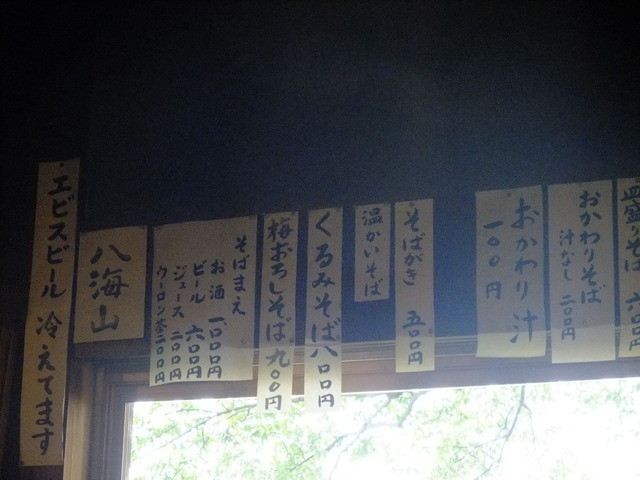 盛りそば
おかわりそば
汁なし 二〇〇円
おかわり汁
一〇〇円
そばがき 五〇〇円
温かいそば
くるみそば八〇〇円
梅おろしそば九〇〇円
そばまえ
お酒 一〇〇〇円
ビール 六〇〇円
ジュース 二〇〇円
ウーロン茶二〇〇円
八海山
エビスビール 冷えてます